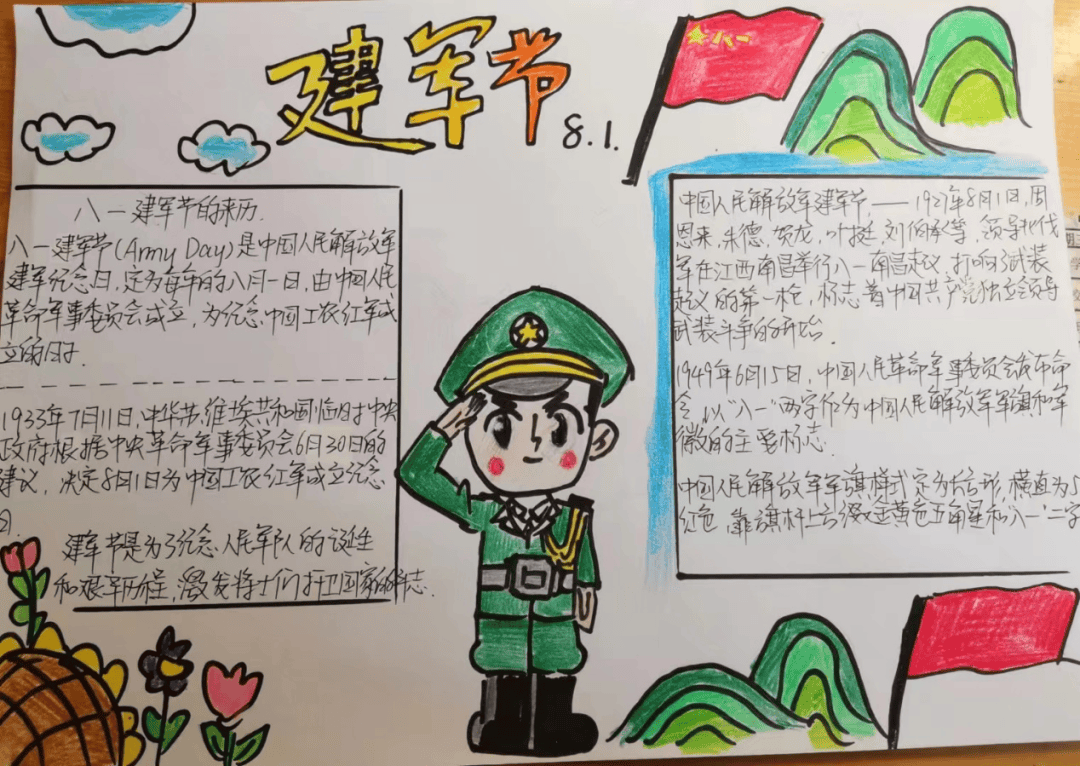 建军节
8.1.
八一
八一建军节的来历.
八一建军节(Army Day)是中国人民解放军
建军纪念日,定为每年的八月一日,由中国人民
革命军事委员会成立,为纪念中国工农红军成
立的日才.
1933年7月11日,中华苏维埃共和国临时中央
政府根据中央革命军事委员会6月30日的
建议,决定8月1日为中国工农红军成立纪念
日.
建军节是为了纪念人民军队的诞生
和艰辛历程,激发将士们打卫国家的斗志.
中国人民解放军建军节,——1927年8月1日,周
恩来,朱德,贺龙,叶挺,刘伯承等,领导北伐
军在江西南昌举行八一南昌起义,打响了武装
起义的第一枪,标志着中国共产党独立领导
武装斗争的开始.
1949年6月15日,中国人民革命军事委员会发布命
令,以"八一"两字作为中国人民解放军军旗和军
徽的主要标志.
中国人民解放军军旗样式定为长方形,横直为5
红色,靠旗杆上方缀金黄色五角星和"八一"二字